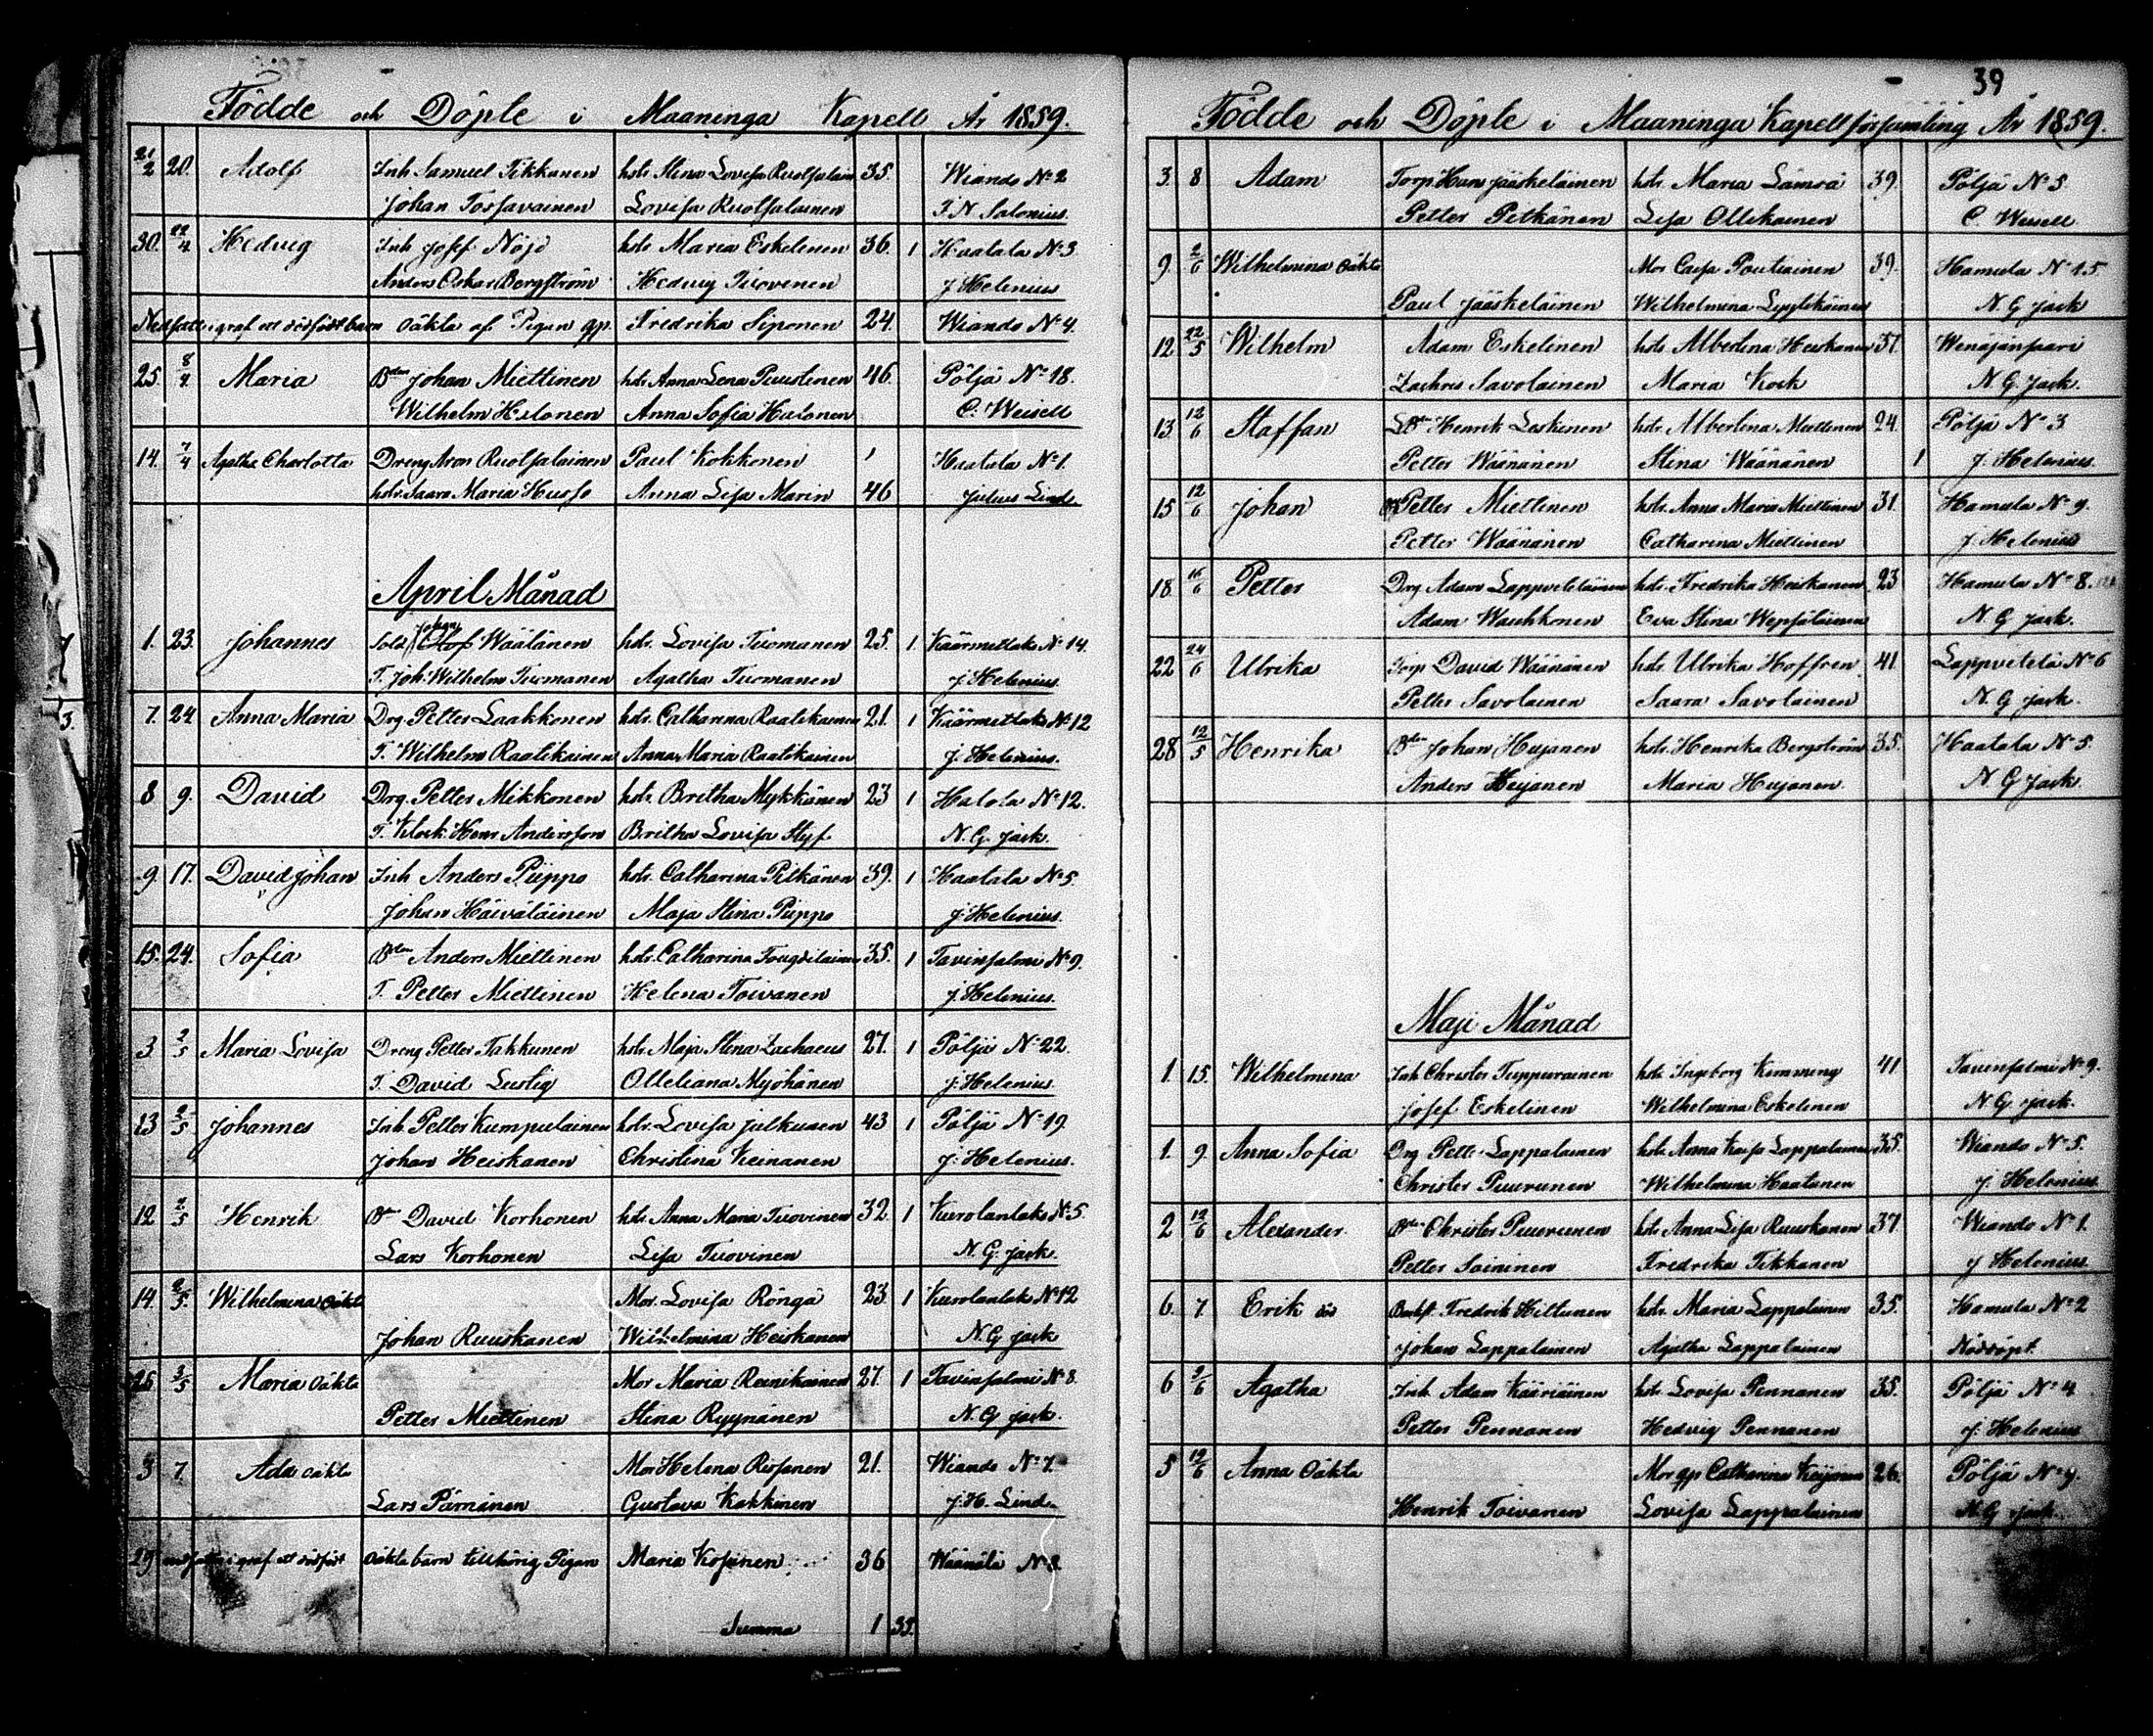 Födde och Döpte i Maaninga Kapell År 1859.
21/2 20. Adolf Inh Samuel Tikkanen hstr. Stina Lovisa Ruotsalain 35. Wiando No 2
Johan Torsavainen Lovisa Ruotsalainen F.N. Salonius.
30. 22/4 Hedvig Inh Josef Nöjd hstr. Maria Eskelinen 36. 1 Haatala No 3
Anders Oskar Bergström Hedvig Tuovinen J. Helenius
Nedsattes i graf ett dödfödt barn oäkta af Pigan gp. Fredrika Siponen 24. Wiando No 4.
25. 8/4 Maria Bden Johan Miettinen hstr. Anna Lena Puustinen 46. Pöljä No 18.
Wilhelm Halonen Anna Sofia Halonen C. Weisell
14. 7/4 Agatha Charlotta Dreng Aron Ruotsalainen Paul Kokkonen 1 Haatala No 1.
hstr. Saara Maria Husso Anna Lisa Marin 46 Julius Lind.
April Månad
1. 23. Johannes Sold Johan Olof Wäätänen hstr. Lovisa Tuomanen 25. 1 Käärmetlaks No 14.
T. Joh. Wilhelm Tuomanen Agatha Tuomanen J. Helenius
7. 24 Anna Maria Drg Petter Laakkonen hstr. Catharina Raatikainen 21. 1 Käärmetlaks No 12
T. Wilhelm Raatikainen Anna Maria Raatikainen J. Helenius.
8 9. David Drg. Petter Mikkonen hstr. Britha Mykkänen 23 1 Halola No 12.
T. Klock. Hans Andersson Britha Lovisa Styf N. G. Jack.
9 17. David Johan Inh Anders Piippo hstr. Catharina Pitkänen 39. 1 Haatala No 5.
Johan Häiväläinen Maja Stina Piippo J. Helenius.
15. 24. Sofia Bden Anders Miettinen hstr. Catharina 35. 1 Tavinsalmi No 9.
T. Petter Miettinen Helena Toivanen J. Helenius.
3 2/5 Maria Lovisa Dreng Petter Takkunen hstr. Maja Stina Zachaeus 27. 1 Pöljä No 22.
T. David Lustig Otteliana Myöhänen J. Helenius.
13 2/5 Johannes Inh. Petter Kumpulainen hstr. Lovisa Julkunen 43 1 Pöljä No 19.
Johan Heiskanen Christina Keinanen J. Helenius.
12 2/5 Henrik Bd. David Korhonen hstr. Anna Maria Tuovinen 32. 1 Kurolanlaks No 5.
Lars Korhonen Lisa Tuovinen N. G. Jack
14. 2/5. Wilhelmina Oäkta Mor. Lovisa Röngä 23 1 Kurolanlaks No 12
Johan Ruuskanen Wilhelmina Heiskanen N. G. Jack
25 3/5 Maria Oäkta Mor Maria Reinikainen 27. 1 Tavinsalmi No 8.
Petter Miettinen Stina Ryynänen N. G. Jack.
3 7. Ada Oäkta Mor Helena Rissanen 21. Wiando No 7.
Lars Pärnänen Gustava Kakkinen J. H. Lind.
29. nedsattes i graf ett dödfödt oäkta barn tillhörig Pigan Maria Kosunen 36 Wäänälä No 8.
Summa 1 35.
39
Födde och Döpte i Maaninga Kapellförsamling År 1859.
3. 8 Adam Torp. Hans Jääskeläinen hstr. Maria Lämsä 39. Pöljä No 5.
Petter Pitkänen Lisa Ollikainen C. Weisell
9. 2/6 Wilhelmina oäkta Mor Caisa Poutiainen 39. Hamula No 15
Paul Jääskeläinen Wilhelmina N. G. Jack
12 22/5 Wilhelm Adam Eskelinen hstr. Albertina Heiskanen 37. Wenäjänsaari
Zachris Savolainen Maria Kock N. G. Jack.
13. 12/6 Staffan Henrik Leskinen hstr. Albertina Miettinen 24. Pöljä No 3
Petter Wäänänen Stina Wäänänen 1 J. Helenius.
15 12/6 Johan Petter Miettinen hstr. Anna Maria Miettinen 31. Hamula No 9.
Petter Wäänänen Catharina Miettinen J. Helenius
18. 16/6 Petter Drg Adam Lappveteläinen hstr. Fredrika Heiskanen 23 Hamula No 8.
Adam Wauhkonen Eva Stina Wepsäläinen N. G. Jack.
22 24/6 Ulrika Torp David Wäänänen hstr. Ulrika Hoffren 41. Lappvetelä No 6
Petter Savolainen Saara Savolainen N. G. Jack.
28 12/5 Henrika Bden Johan Hujanen hstr. Henrika Bergström 35. Haatala No 5.
Anders Hujanen Maria Hujanen. N. G. Jack.
Maji Månad
1. 15. Wilhelmina Inh Christer Tuppurainen hstr. Ingeborg Kemming 41 Tavinsalmi No 9.
Josef Eskelinen Wilhelmina Eskelinen N. G. Jack.
1. 9. Anna Sofia Drg Petter Lappalainen hstr. Anna Kaisa Lappalainen 35. Wiando No 5.
Christer Puurunen Wilhelmina Haatanen J. Helenius
2 12/6 Alexander. Bden Christer Puurunen hstr. Anna Lisa Ruuskanen 37. Wiando No 1.
Petter Soininen Fredrika Tikkanen J Helenius
6. 7 Erik Fredrik Hiltunen hstr. Maria Lappalainen 35. Hamula No 2
Johan Lappalainen Agatha Lappalainen Nöddöpt.
6 9/6 Agatha Inh. Adam Kääriäinen hstr. Lovisa Pennanen 35. Pöljä No 4
Petter Pennanen Hedvig Pennanen J. Helenius
5 12/6 Anna Oäkta Mor gp Catharina Keijonen 26. Pöljä No 9.
Henrik Toivanen Lovisa Lappalainen N. G Jack.